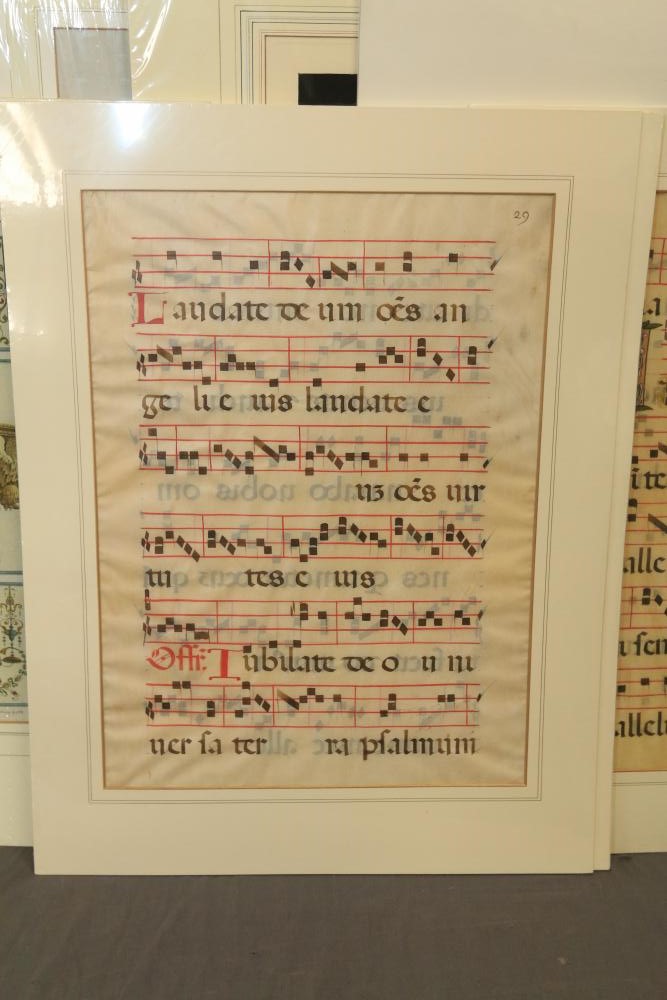 29
Laudate de um oēs an
ge li e ius laudate e
uʒ oēs uir
tu tes e ius
Offr̄. Iubilate de o u ni
uer sa ter ra psalmum
alle
alleli